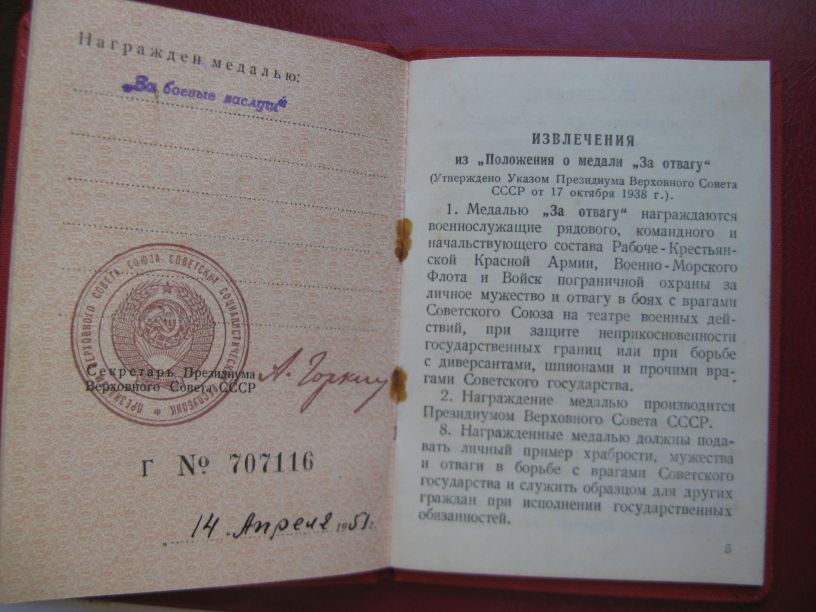 Награжден медалью:
„За боевые заслуги“
ПРЕЗИДИУМ ВЕРХОВНОГО СОВЕТА СОЮЗА СОВЕТСКИХ СОЦИАЛИСТИЧЕСКИХ РЕСПУБЛИК
Секретарь Президиума
Верховного Совета СССР
А. Горкин
Г № 707116
14 Апреля 1951 г.
ИЗВЛЕЧЕНИЯ
из „Положения о медали „За отвагу“
(Утверждено Указом Президиума Верховного Совета
СССР от 17 октября 1938 г.).
1. Медалью „За отвагу“ награждаются
военнослужащие рядового, командного и
начальствующего состава Рабоче-Крестьян-
ской Красной Армии, Военно-Морского
Флота и Войск пограничной охраны за
личное мужество и отвагу в боях с врагами
Советского Союза на театре военных дей-
ствий, при защите неприкосновенности
государственных границ или при борьбе
с диверсантами, шпионами и прочими вра-
гами Советского государства.
2. Награждение медалью производится
Президиумом Верховного Совета СССР.
8. Награжденные медалью должны пода-
вать личный пример храбрости, мужества
и отваги в борьбе с врагами Советского
государства и служить образцом для других
граждан при исполнении государственных
обязанностей.
5